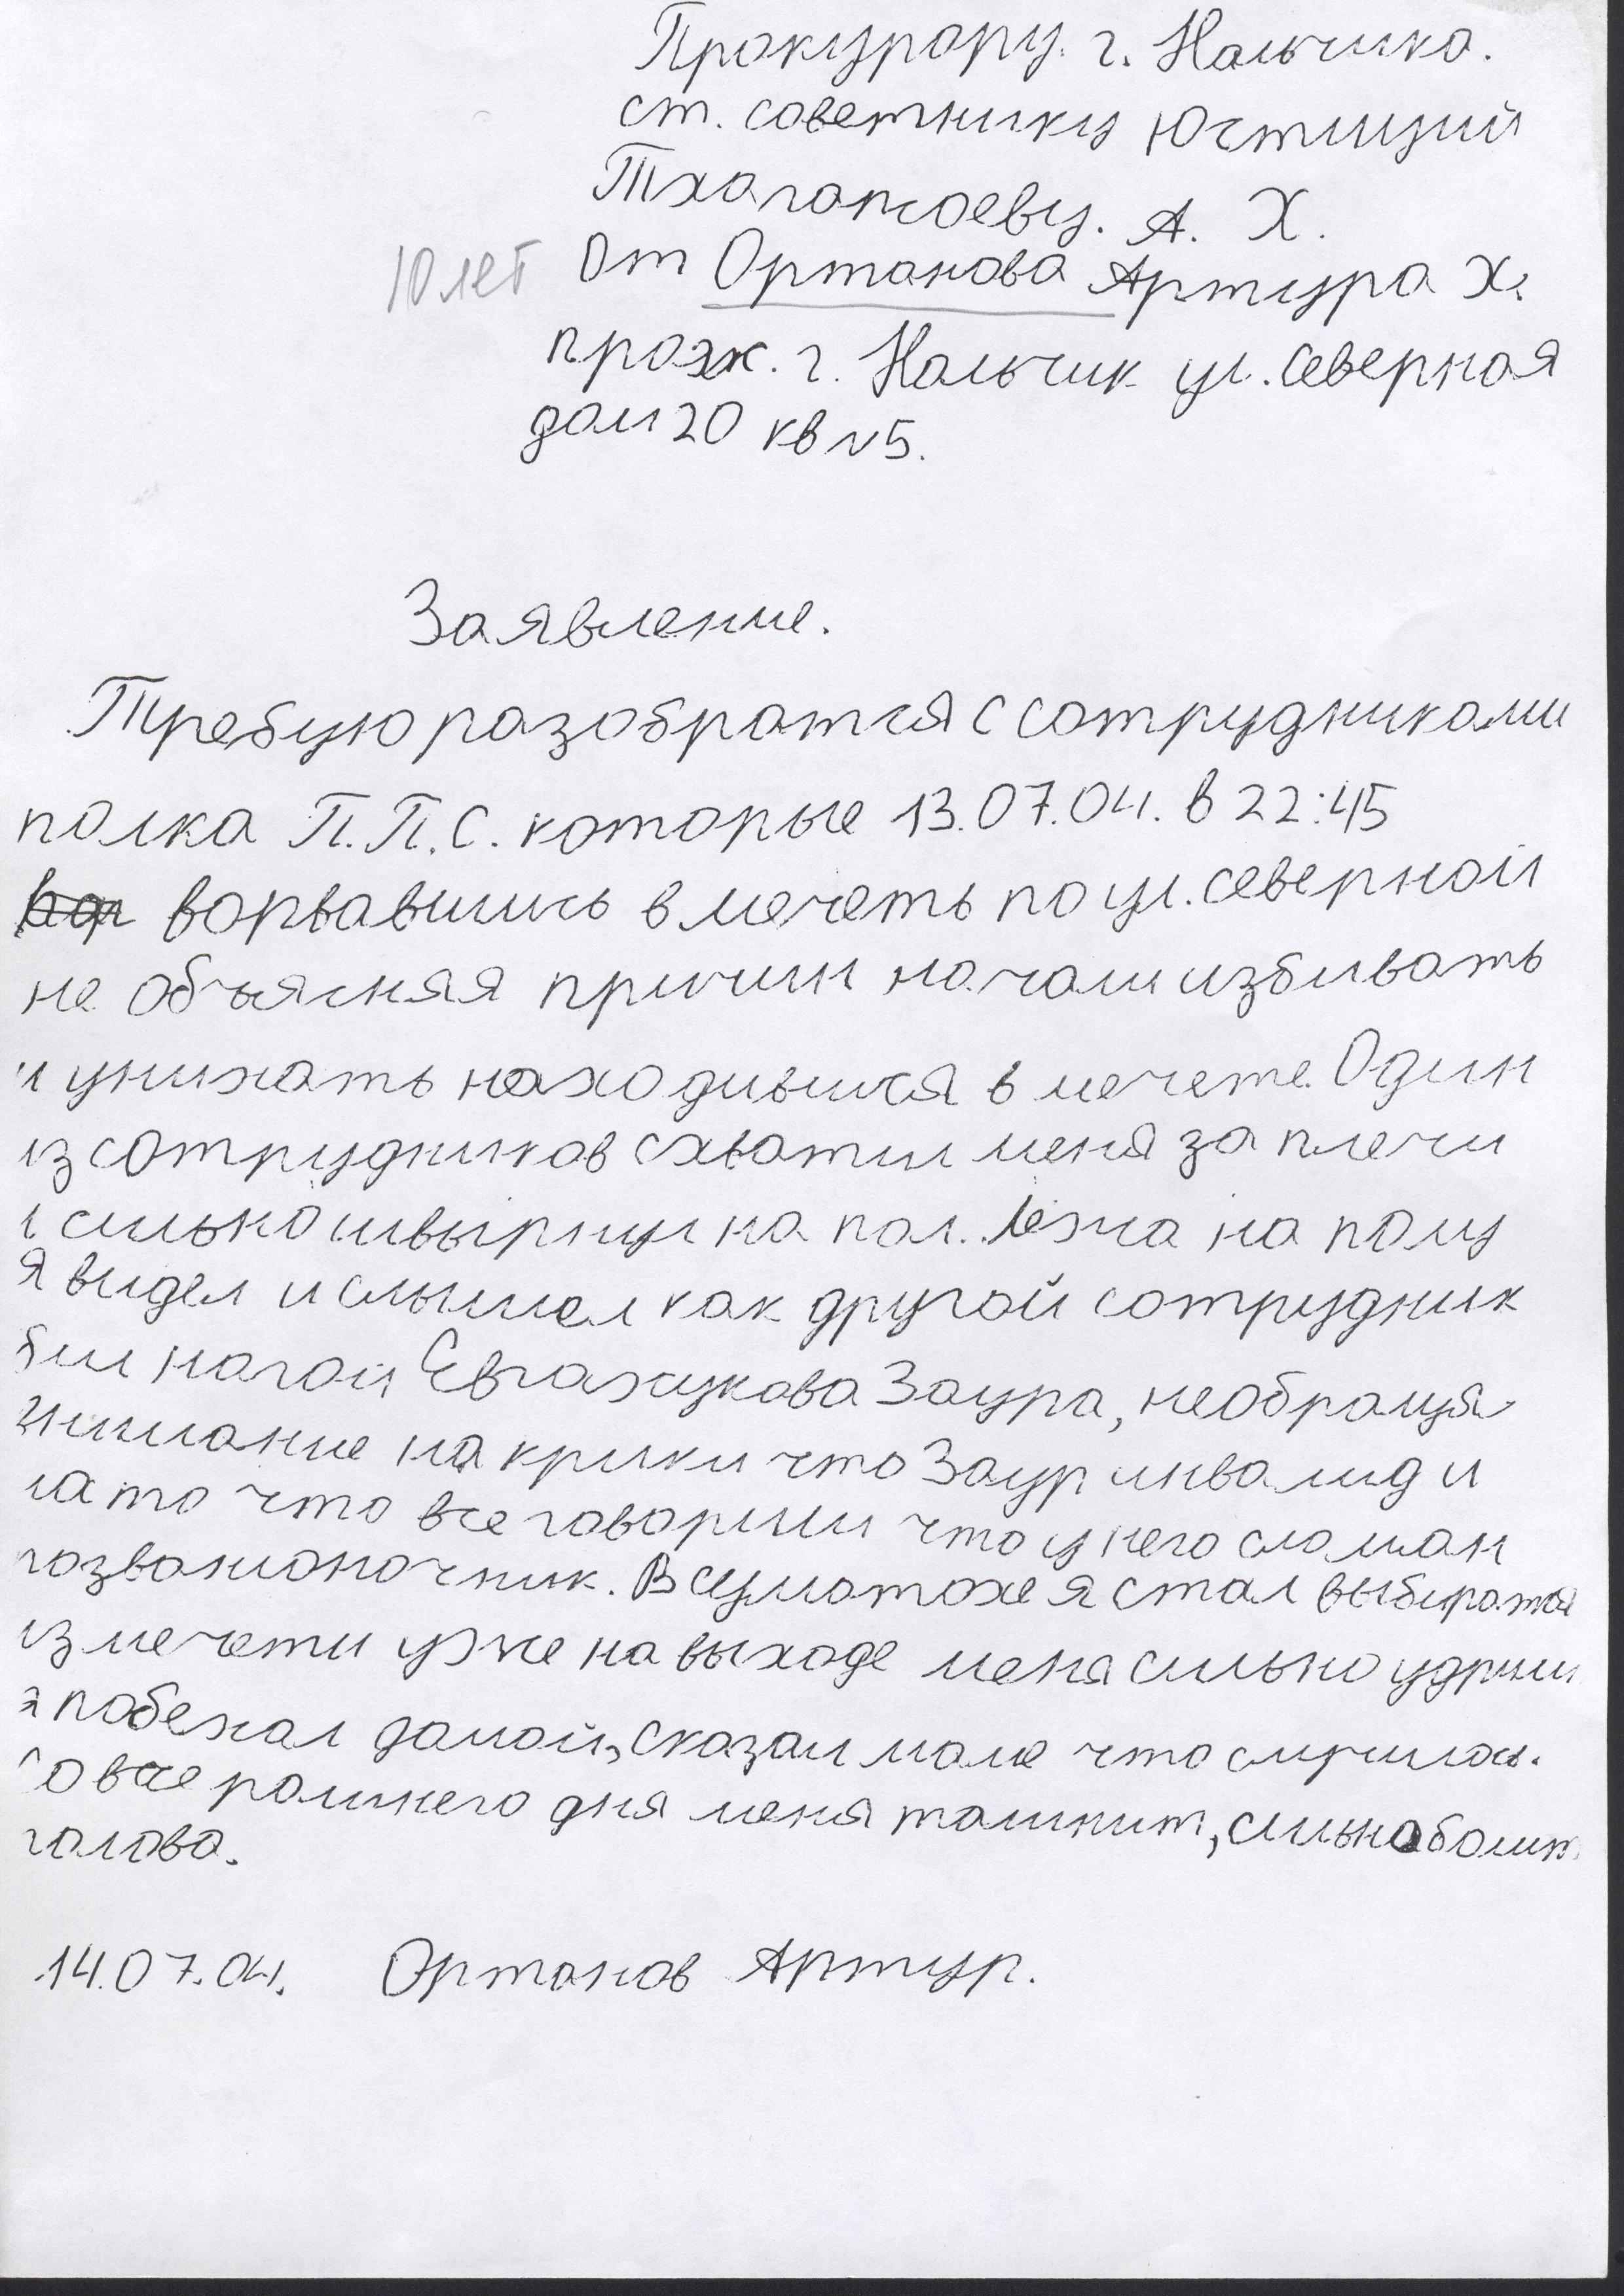 Прокурору. г. Нальчика.
ст. советнику Юстиций
Тхагапсоеву. А. Х.
10 лет От Ортанова Артура Х.
прож. г. Нальчик ул. Северная
дом 20 кв №5.
Заявление.
Требую разобратся с сотрудниками
полка П.П.С. которые 13.07.04. в 22:45
ворвавшись в мечеть по ул. северной
не объясняя причин начали избивать
и унижать находившися в мечете. Один
из сотрудников схватил меня за плечи
и сильно швырнул на пол. Лёжа на полу
я видел и слышал как другой сотрудник
бил ногой Евгажукова Заура, необращя
внимание на крики что Заур инвалид и
на то что все говорили что у него сломан
позвононочник. В суматохе я стал выбиратся
из мечети уже на выходе меня сильно удрили
я побежал домой, сказал маме что случилось.
Со вчерашнего дня меня ташнит, сильно болит
голова.
14.07.04. Ортанов Артур.